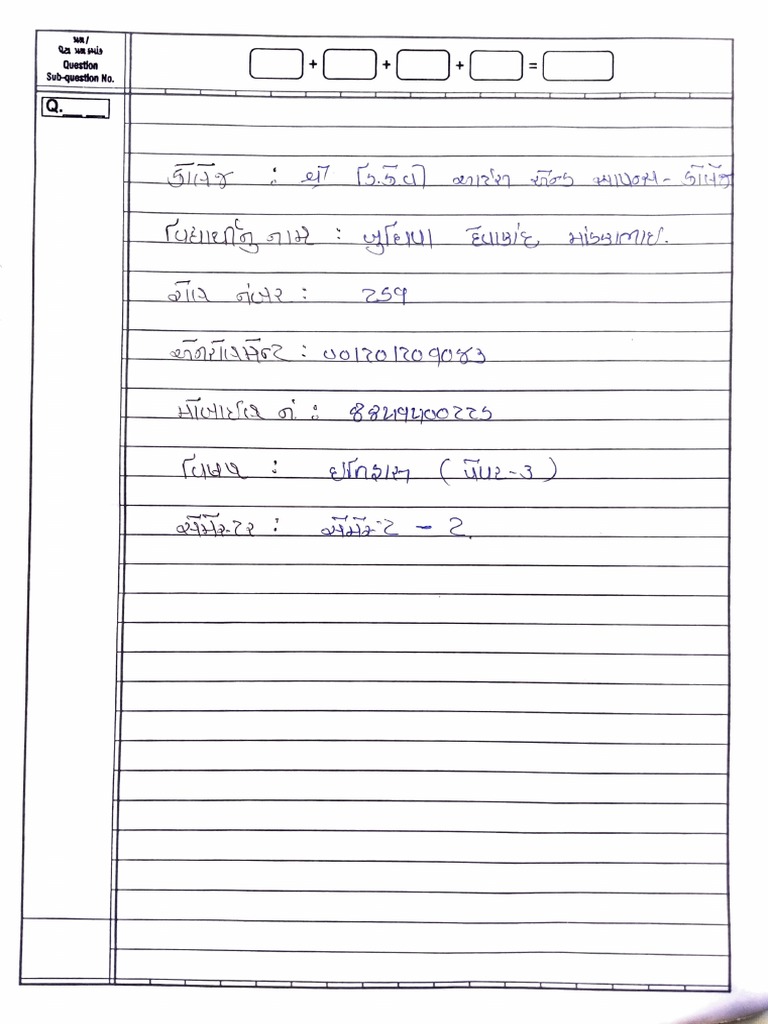 પ્રશ્ન /
પેટા પ્રશ્ન ક્રમાંક
Question
Sub-question No.
+ + + =
Q.
કૉલેજ : શ્રી ડી.કે.વી આર્ટસ એન્ડ સાયન્સ - કૉલેજ
વિદ્યાર્થીનું નામ :
રોલ નંબર : ૨૬૧
એનરોલમેન્ટ : ૦૦૧૨૦૧૨૦૧૦૪૩
મોબાઈલ નં :
વિષય : ઈતિહાસ ( પેપર - ૩ )
સેમેસ્ટર : સેમેસ્ટર - 2.